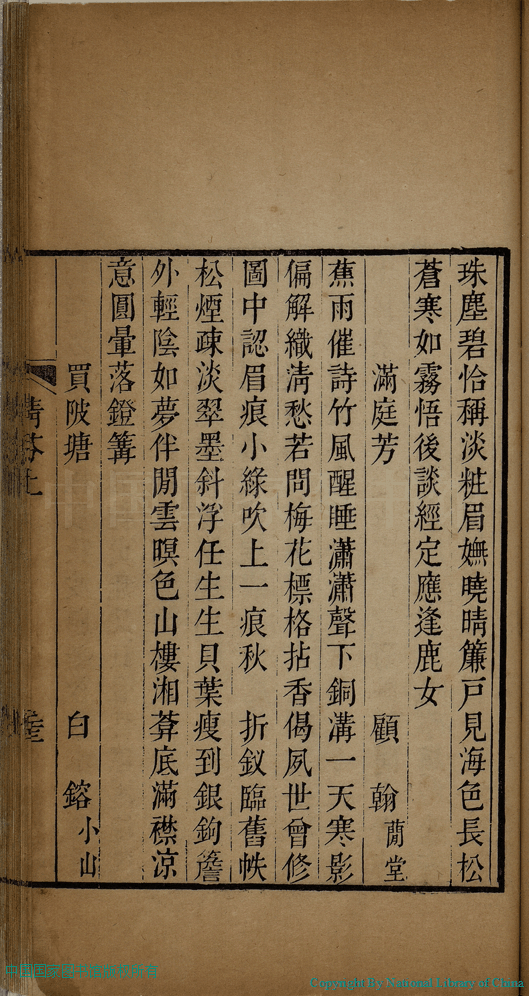 珠塵碧恰稱淡粧眉嫵曉晴簾戶見海色長松
蒼寒如霧悟後談經定應逢鹿女
滿庭芳 顧翰蕳堂
蕉雨催詩竹風醒睡瀟瀟聲下銅溝一天寒影
偏解織淸愁若問梅花標格拈香偈夙世曾修
圖中認眉痕小綠吹上一痕秋 折釵臨舊帙
松煙疎淡翠墨斜浮任生生貝葉瘦到銀鉤簷
外輕陰如夢伴閒雲暝色山樓湘簟底滿襟凉
意圓暈落鐙篝
買陂塘 白鎔小山
Copyright By National Library of China